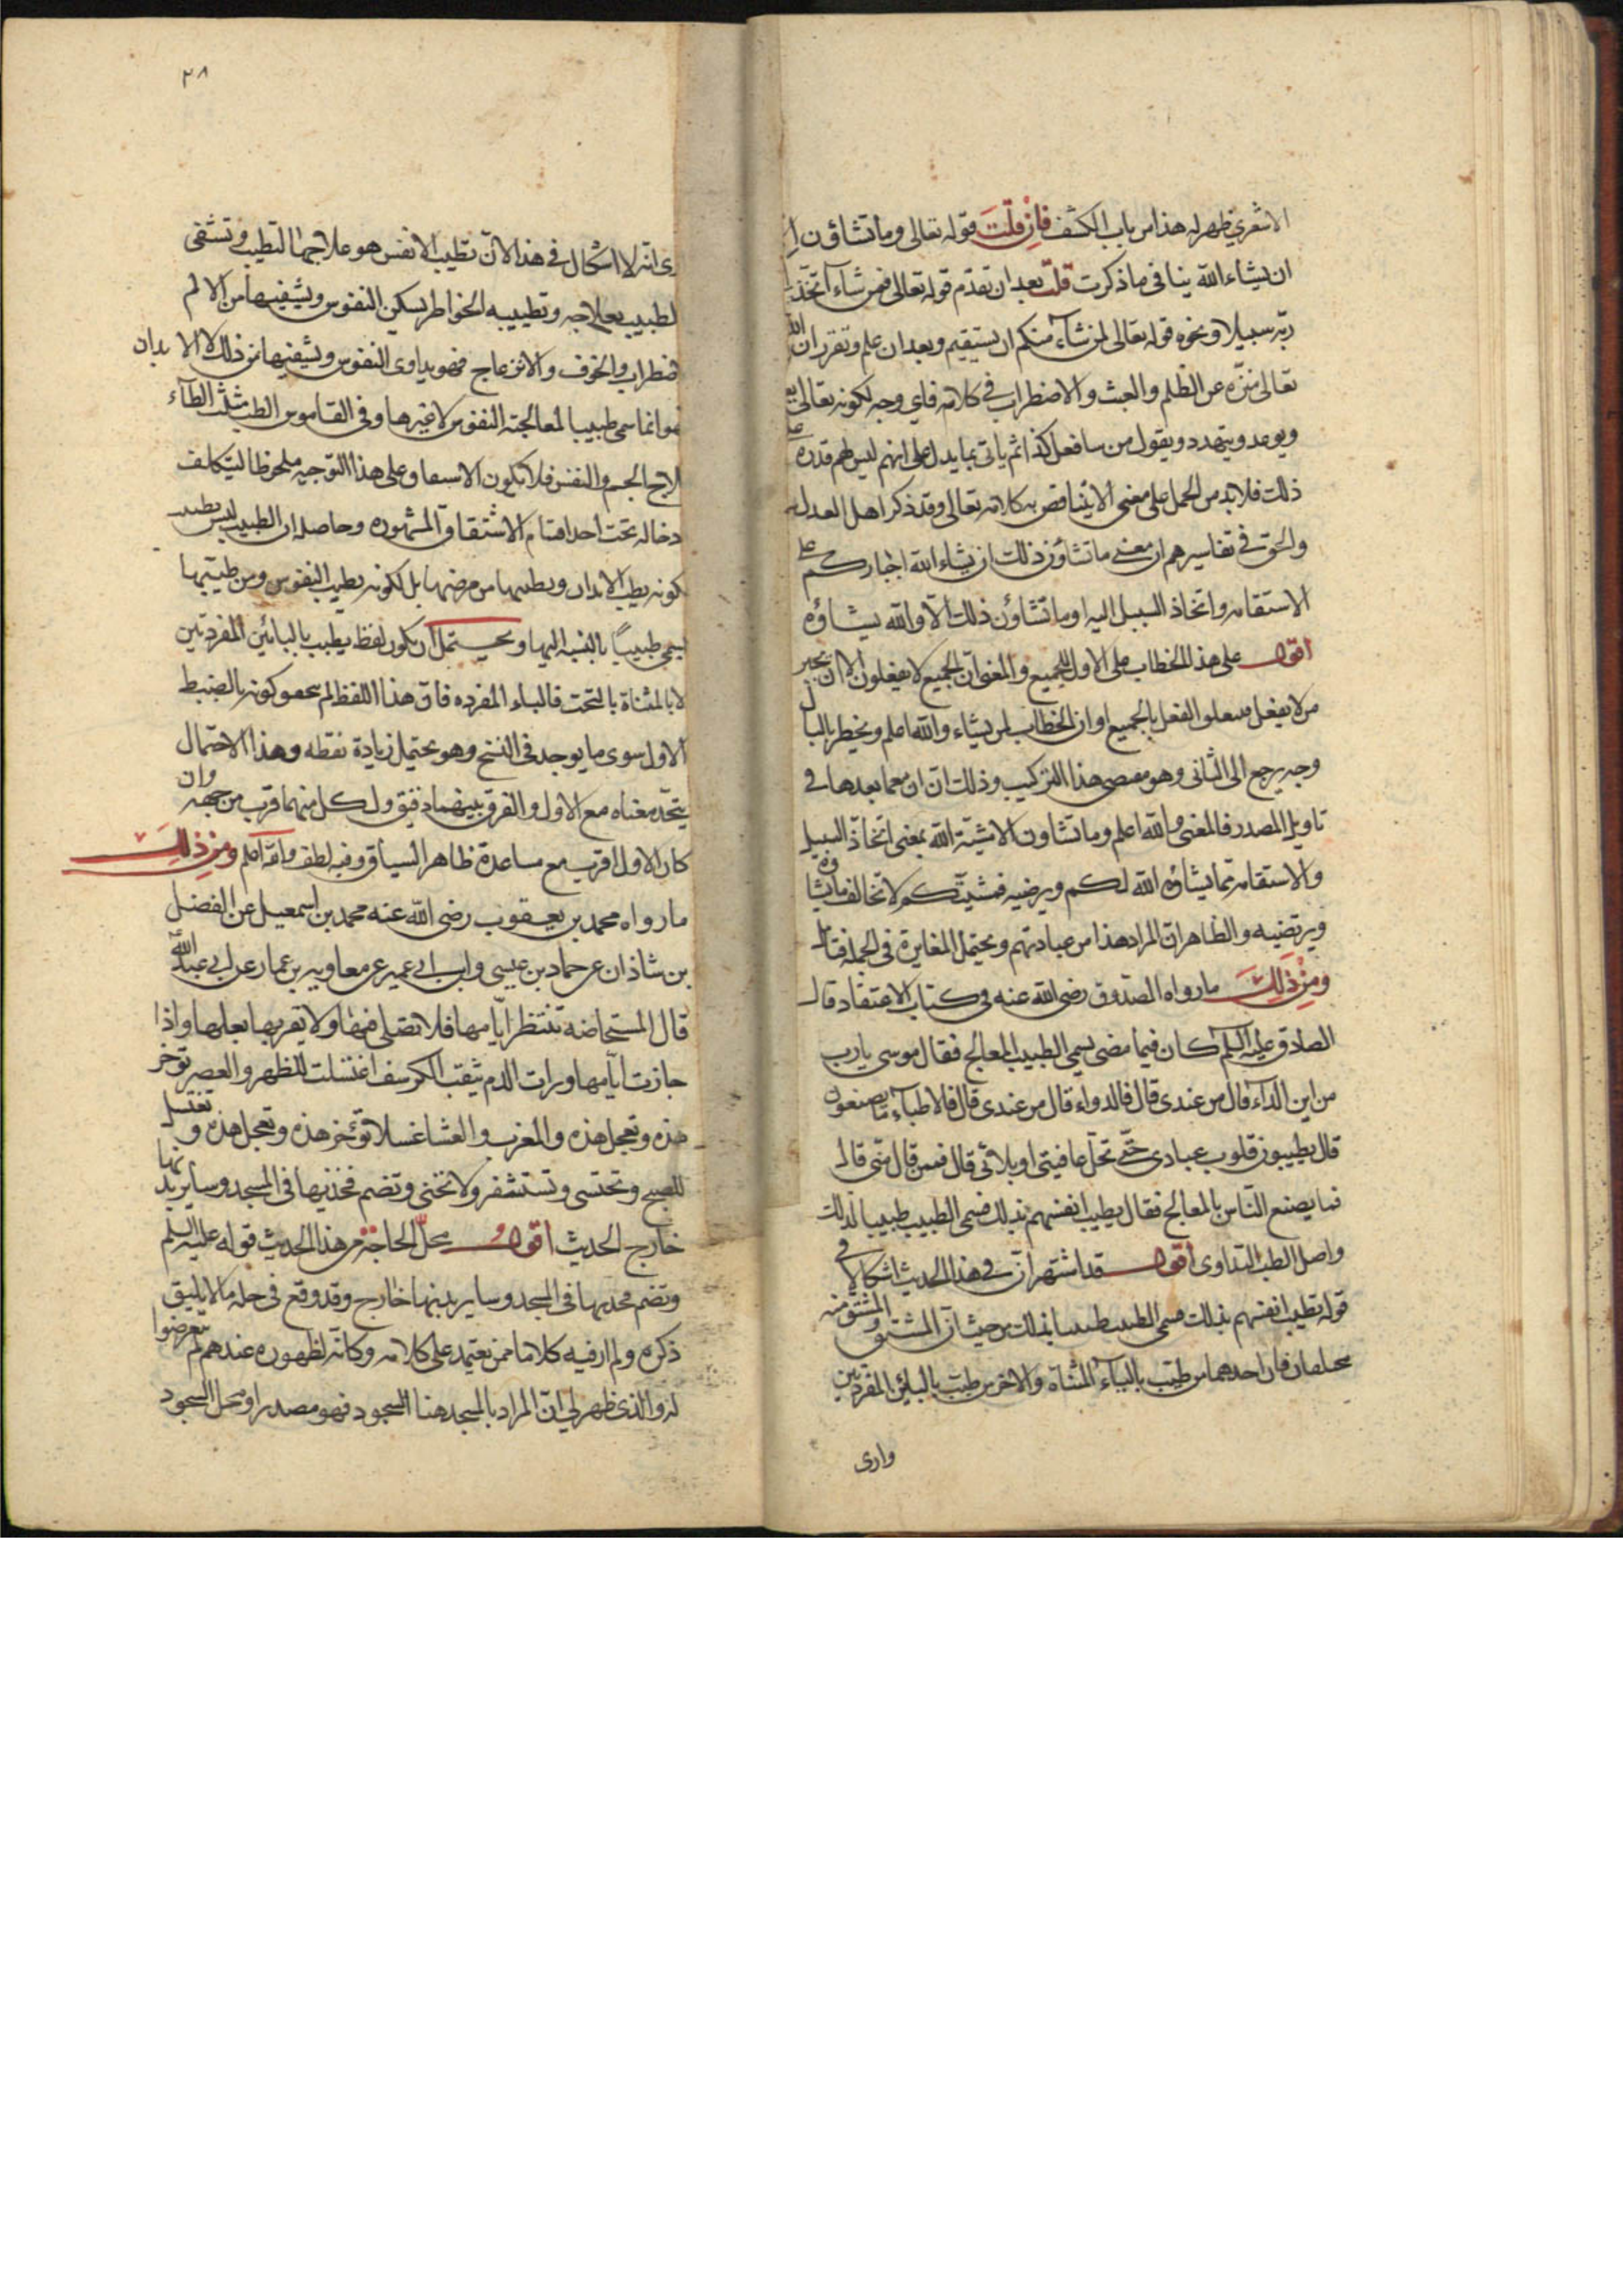 الاشعري ظهر له هذا من باب الكشف فان قلت قوله تعالى وما تشاؤن الا
ان يشاء الله ينافي ما ذكرت قلت بعد ان تقدم قوله تعالى فمن شاء اتخذ الى
ربه سبيلا ونحوه قوله تعالى لمن شاء منكم ان يستقيم وبعد ان علم وتقرر ان الله
تعالى منزه عن الظلم والعبث والاضطراب في كلامه فاي وجه لكونه تعالى
ويوعد ويتهدد ويقول من سافعل كذا ثم ياتي بما يدل على انهم ليس لهم قدرة على
ذلك فلا بد من الحمل على معنى لا يتناقض به كلامه تعالى وقد ذكر اهل العدل
والحق في تفاسيرهم ان معنى ما تشاؤن ذلك ان يشاء الله اجباركم على
الاستقامه واتخاذ السبيل اليه او ما تشاؤن ذلك الا والله يشاؤه
اقول على هذا الخطاب على الاول للجميع والمعنى ان الجميع لا يفعلون الا ان يجبر
من لا يفعل الفعل بالجميع او ان الخطاب لمن يشاء والله اعلم ويخطر بالبال
وجه يرجع الى الثاني وهو هذا التركيب وذلك ان ان مع ما بعدها في
تاويل المصدر فالمعنى والله اعلم وما تشاون الا مشية الله بمعنى اتخاذ السبيل
والاستقامه مما يشاؤه الله لكم ويرضيه فمشيتكم لا تخالف ما يشاؤه
ويرتضيه والظاهر ان المراد هذا من عبادتهم ويحتمل المغايرة في الجملة فتامل
ومن ذلك ما رواه الصدوق رضى الله عنه في كتاب الاعتقاد قال
الصادق عليه السلم كان فيما مضى يسمى الطبيب المعالج فقال موسى يارب
من اين الداء قال من عندي قال فالدواء قال من عندي قال فالاطباء ما يصنعون
قال يطيبون قلوب عبادى حتى تحل عافيتى او بلائى قال فممن قال منى قال
فما يصنع الناس بالمعالج فقال يطيب انفسهم بذلك فسمى الطبيب طبيبا لذلك
واصل الطب التداوى اقول قد اشتهر ان في هذا الحديث اشكالا في
قوله تطيب انفسهم بذلك فسمى الطبيب طبيبا بذلك من حيث ان المشتق والمشتق منه
مختلفان فان احدهما من طيب بالياء المثناة والاخر من طبب بالبائين المفردتين
وارى
٣٨
رى انه لا اشكال في هذا لان تطيب الانفس هو علاجها التطيب وتشقى
لطبيب بعلاجه وتطييبه الخواطر يسكن النفوس ويشفيها من الالم
ضطراب والخوف والانزعاج فهو يداوى النفوس ويشفيها من ذلك لا الابدان
هو انما سمى طبيبا لمعالجته النفوس لا غيرها وفى القاموس الطب مثلث الطاء
لاج الجسم والنفس فلا يكون الاسم على هذا التوجيه ملحوظا ليتكلف
دخاله تحت احد اقسام الاشتقاق المشهوره وحاصله ان الطبيب ليس
كونه يطب الابدان ويطبها من مرضها بل لكونه يطيب النفوس ومن طيبها
يسمى طبيبًا بالنسبة اليها ويحتمل ان يكون لفظ يطبب بالبائين المفردتين
لا بالمثناة بالتحت فالباء المفرده فان هذا اللفظ لم كونه بالضبط
الاول سوى ما يوجد فى النسخ وهو يحتمل زيادة نقطه وهذا الاحتمال
يتحد معناه مع الاول والفرق بينهما دقيق ولكل منهما قرب من جهه وان
كان الاول اقرب مع مساعدة ظاهر السياق وفيه لطف والله اعلم ومن ذلك
ما رواه محمد بن يعقوب رضى الله عنه محمد بن اسمعيل عن الفضل
بن شاذان عن حماد بن عيسى وابن ابي عمير عن معاويه بن عمار عن ابي عبد الله
قال المستحاضه تنتظر ايامها فلا تصلى فيها ولا يقربها بعلها واذا
جازت ايامها ورات الدم يثقب الكرسف اغتسلت للظهر والعصر توخر
هذه وتعجل هذه والمغرب والعشا غسلا تؤخر هذه وتعجل هذه وتغتسل
للصبح وتحتشى وتستثفر ولا تحنى وتضم فخذيها فى المسجد وساير بدنها
خارج الحديث اقول محل الحاجة من هذا الحديث قوله عليه السلم
وتضم فخذيها فى المسجد وساير بدنها خارج وقد وقع فى حله ما لا يليق
ذكره ولم ار فيه كلاما ممن يعتمد على كلامه وكانه لظهوره عندهم لم يتعرضوا
له والذى ظهر لي ان المراد بالمسجد هنا السجود فهو مصدر او محل السجود